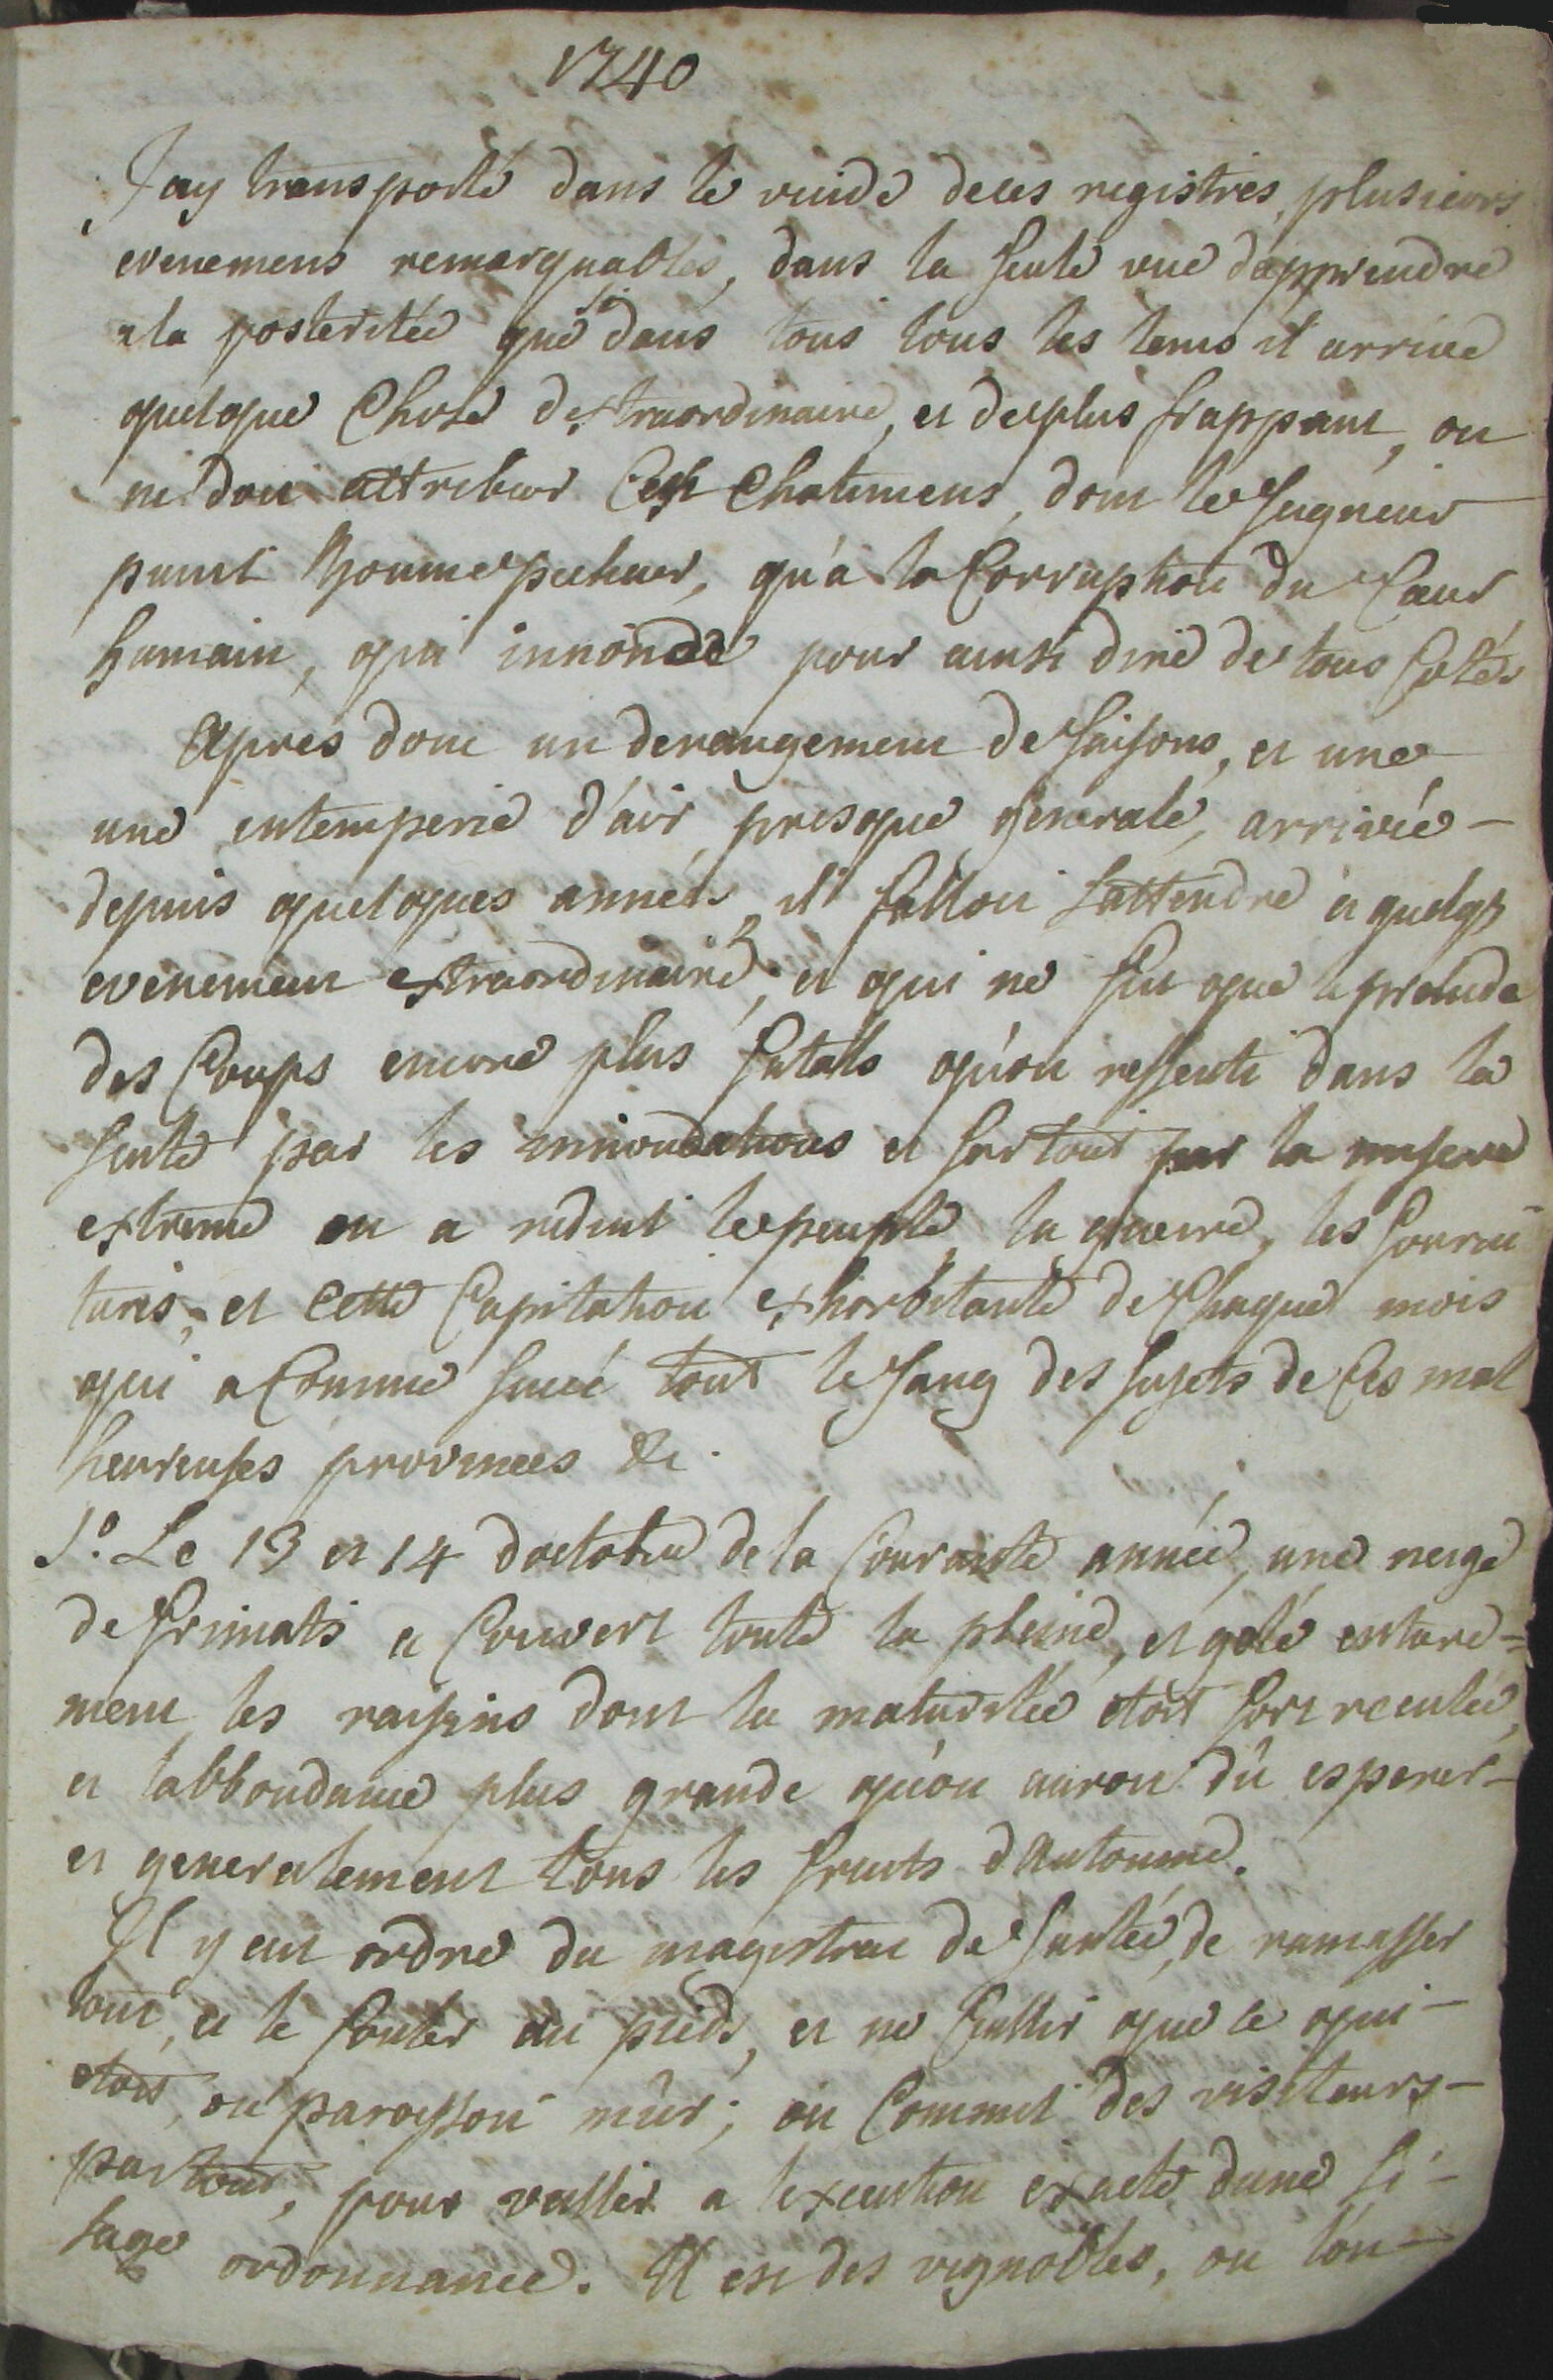 1740
Jay transporté dans le vuide deces registres, plusieurs
evenemens remarquables, dans la seule vue d'apprendre
ala posteritée que si dans tous tous les tems il arrive
quelque chose d'extraordinaire, et de plus frappant, on
ne doit attribuer ces chatimens, dont le seigneur
punit l'homme pecheur, qu'à la Corruption du Cœur
humain, qui innonde pour ainsi dire de tous Cotés
Apres donc un derangement de saisons, et une
une intemperie d'air, presque generale, arrivée -
depuis quelques années, il falloit sattendre a quelq
evenement extraordinaire, et qui ne fut que le prelude
des Coups encore plus fatals qu'on ressenti dans la
suite par les innondations et sur tout par la misere
extreme ou a reduit le peuple la guerre, les fourni
tures, et cette Capitation exhorbitante de Chaque mois
qui a Comme succé tout le sang des sujets de Ces mal
heureuses provinces &c.
1.° Le 13 et 14 doctobre de la Courante année, une neige
de frimats a Couvert toute la pleine, et gelé entiere=
ment les raisins dont la maturitée etoit fort reculée,
et labbondance plus grande qu'on auroit dû esperer -
et generalement tous les fruits d'automne.
Il y eut ordre du magistrat de santée, de ramasser
tout, et le fouler au pieds, et ne Cullir que ce qui -
etoit, ou paroissoit mûr; on Commit des visiteurs -
par tout, pour veiller a lexecution exacte dune si -
sage ordonnance. Il est des vignobles, ou l'on -